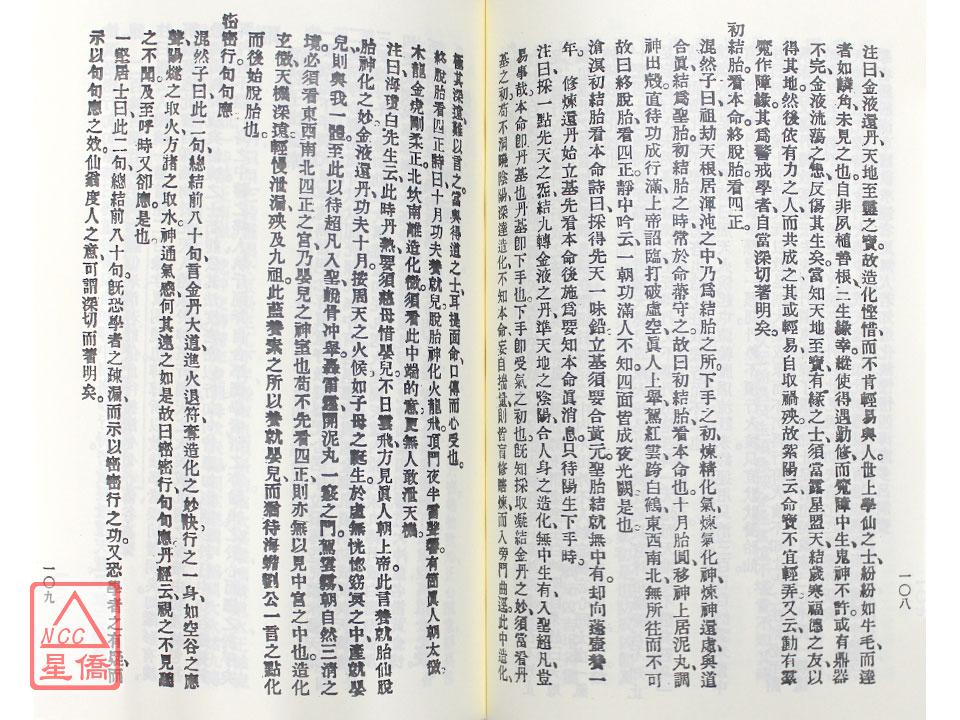 注曰金液還丹天地至靈之寶故造化慳惜而不肯輕易與人世上學仙之士紛紛如牛毛而達
者如麟角未見之也自非夙植善根二生緣幸縱使得遇勤修而魔障中生鬼神不許或有鼎器
不完金液流蕩之患反傷其生矣當知天地至寶有緣之士須當露星盟天結歲寒福德之友以
得其地然後依有力之人而共成之其或輕易自取禍殃故紫陽云命寶不宜輕弄又云勸有羣
魔作障緣其爲警戒學者自當深切著明矣
初結胎看本命終脫胎看四正
混然子曰祖劫天根居渾沌之中乃爲結胎之所下手之初煉精化氣煉氣化神煉神還虛與道
合眞結爲聖胎初結胎之時常於命蒂守之故曰初結胎看本命也十月胎圓移神上居泥丸調
神出殼直待功成行滿上帝詔臨打破虛空眞人上舉駕紅雲跨白鶴東西南北無所往而不可
故曰終脫胎看四正靜中吟云一朝功滿人不知四面皆成夜光闕是也
滄溟初結胎看本命詩曰採得先天一味鉛立基須要合黃元聖胎結就無中有却向蓬壺養一
年 修煉還丹始立基先看本命後施爲要知本命眞消息只待陽生下手時
注曰採一點先天之炁結九轉金液之丹準天地之陰陽合人身之造化無中生有入聖超凡豈
易事哉本命卽丹基也丹基卽下手也下手卽受氣之初也旣知採取凝結金丹之妙須當看丹
基之初苟不洞曉陰陽深達造化不知本命妄自揣量則皆盲修瞎煉而入旁門曲逕此中造化
極其深遠難以言之當與得道之士耳提面命口傳而心受也
終脫胎看四正詩曰十月功夫養就兒脫胎神化火龍飛頂門夜半雷聲響有箇眞人朝太微
木龍金虎剛柔正北坎南離造化微須看此中端的意更無人敢泄天機
注曰海瓊白先生云此時丹熟要須慈母惜嬰兒不日雲飛方見眞人朝上帝此言養就胎仙脫
胎神化之妙金液還丹功夫十月按周天之火候如子母之誕生於虛無恍惚窈冥之中產就嬰
兒則與我一體至此以待超凡入聖蛻骨冲舉轟雷霆開泥丸一竅之門駕雲驂朝自然三淸之
境必須看東西南北四正之宮乃嬰兒之神室也苟不先看四正則亦無以見中宮之中也造化
玄微天機深遠輕慢泄漏殃及九祖此藍養素之所以養就嬰兒而猶待海蟾劉公一言之點化
而後始脫胎也
密密行句句應
混然子曰此二句總結前八十句言金丹大道進火退符奪造化之妙訣行之一身如空谷之應
聲陽燧之取火方諸之取水神通氣感何其速之如是故曰密密行句句應丹經云視之不見聽
之不聞及至呼時又卻應是也
一壑居士曰此二句總結前八十句旣恐學者之疎漏而示以密密行之功又恐學者之有疑而
示以句句應之效仙翁度人之意可謂深切而著明矣
一〇八
一〇九
NCC
星僑